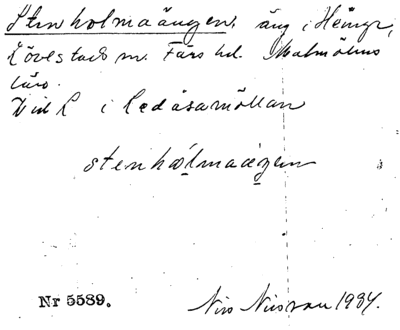 Stenholmaängen. äng i Heinge,
Lövestads sn. Färs hd. Malmöhus
län.
Vid L i Ledåsamöllan
stenhólmaäŋen
Nr 5589.
Nils Nilsson 1934.